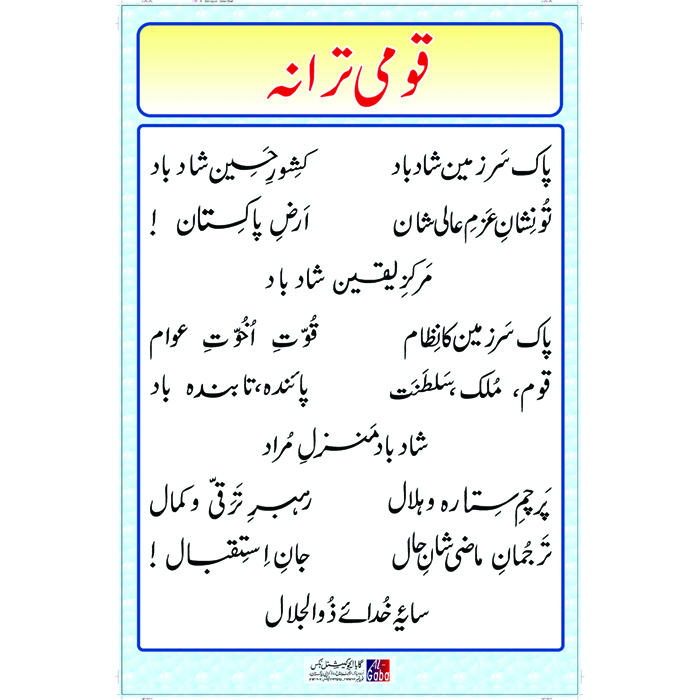 قومی ترانہ
پاک سَرزمین شاد باد کِشورِ حَسِین شاد باد
تُو نِشانِ عَزمِ عالی شان اَرضِ پاکِستان !
مَرکزِ یقین شاد باد
پاک سَرزمین کا نِظام قُوّتِ اُخُوّتِ عوام
قوم، مُلک ،سَلطَنَت پائندہ،تابندہ باد
شاد باد مَنزلِ مُراد
پَرچمِ سِتارہ و ہلال رہبرِ تَرَقیّ و کمال
تَرجُمانِ ماضی شانِ حال جانِ اِستِقبال !
سایۂ خُدائے ذُوالجلال
گابا ایجوکیشنل بکس Al-Gaba